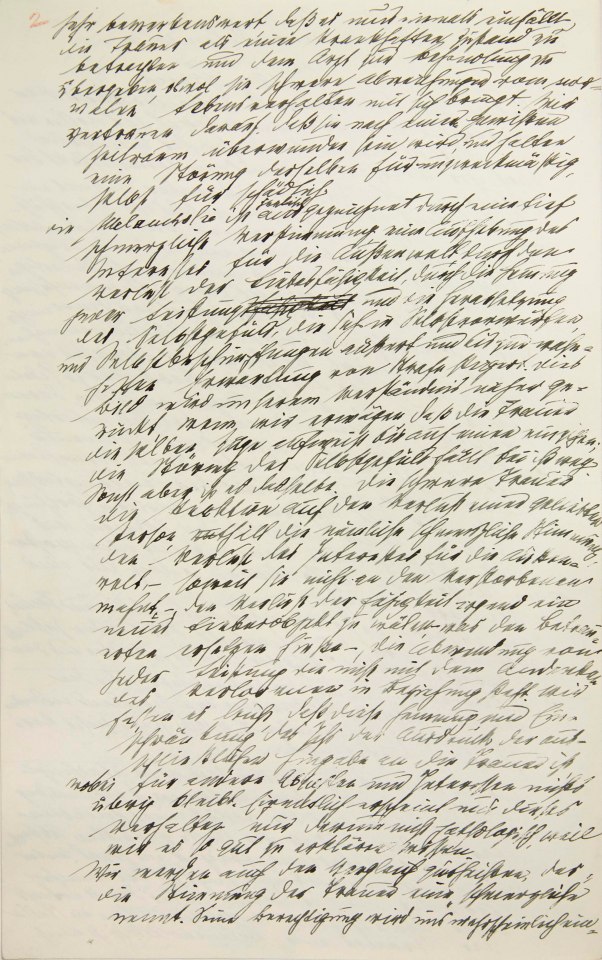 Sehr bemerkenswert daß es uns niemals einfällt,
die Trauer als einen krankhaften Zustand zu
betrachten und dem Arzt zur Behandlung zu
übergeben, obwol sie schwere Abweichungen vom nor-
malen Lebensverhalten mit sich bringt. Wir
vertrauen darauf, daß sie nach einem gewissen
Zeitraum überwunden sein wird und halten
eine Störung derselben für unzweckmäßig,
selbst für schädlich
die Melancholie ist seelisch ausgezeichnet durch eine tief
schmerzliche Verstimmung eine Aufhebung des
Interesses für die Außenwelt durch den
Verlust der Liebesfähigkeit, durch die Hemmung
jeder Leistung und die Herabsetzung
des Selbstgefüls, die sich in Selbstvorwürfen
und Selbstbeschimpfungen äußert und bis zur wahn-
haften Erwartung von Strafe steigert. Dies
Bild wird unserem Verständnis näher ge-
rückt wenn wir erwägen daß die Trauer
dieselben Züge aufweist bis auf einen einzigen;
die Störung des Selbstgefüls fällt bei ihr weg.
Sonst aber ist es dasselbe. Die schwere Trauer
die Reaktion auf den Verlust einer geliebten
Person enthält die nämliche schmerzliche Stimmung,
den Verlust des Interesses für die Außen-
welt – soweit sie nicht an den Verstorbenen
mahnt – den Verlust der Fähigkeit irgend ein
neues Liebesobjekt zu wälen – was den Betrau-
erten ersetzen hieße – die Abwendung von
jeder Leistung die nicht mit dem Andenken
des Verlorenen in Beziehung steht. Wir
fassen es leicht daß diese Hemmung und Ein-
schränkung des Ichs der Ausdruck der aus-
schließlichen Hingabe an die Trauer ist
wobei für andere Absichten und Interessen nichts
übrig bleibt. Eigentlich erscheint uns dieses
Verhalten nur darum nicht pathologisch weil
wir es so gut zu erklären wissen.
Wir werden auch den Vergleich gutheißen, der
die Stimmung der Trauer eine „schmerzliche“
nennt. Seine Berechtigung wird uns wahrscheinlich ein-